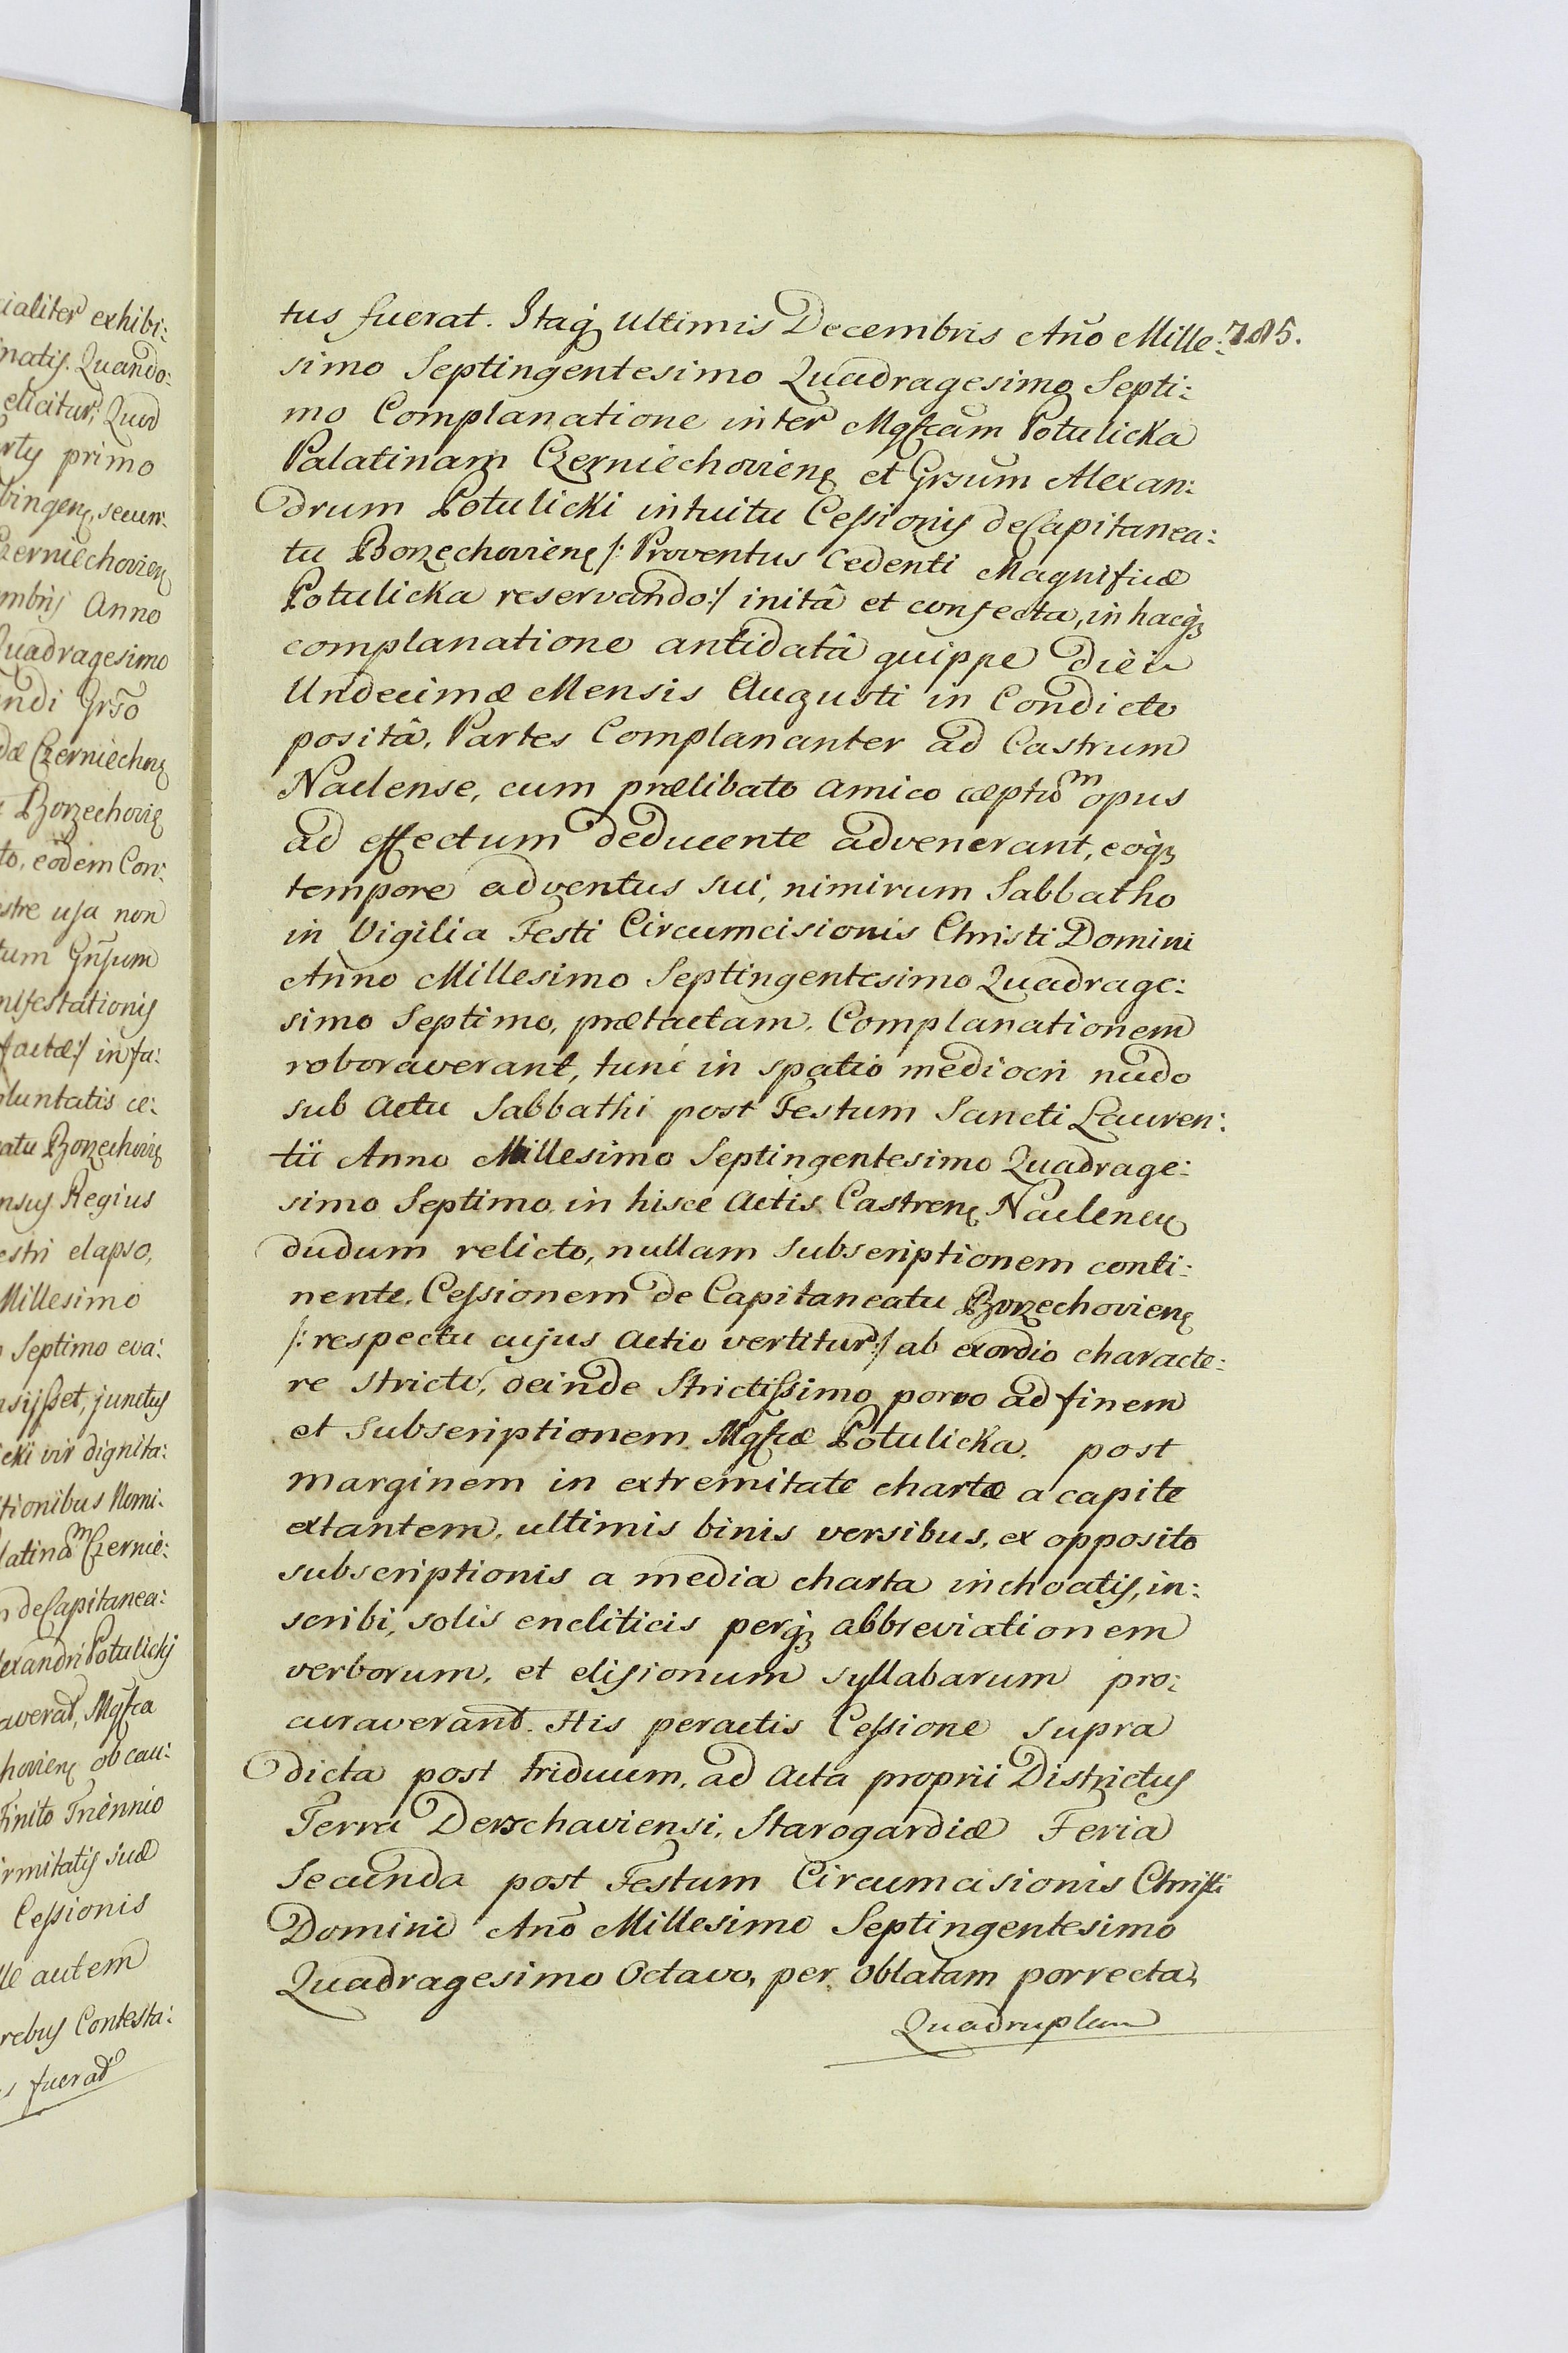 cialiter exhibi:
natis. Quando:
elicitur, Quod
primo
secun:
Czerniechovien
mbris Anno
Quadragesimo
ndi Grso
dæ Czerniechov
Borzechovien
to, eodem Con:
estre usa non
tum Grsum
nifestationis
factæ:/ in fa:
oluntatis ce:
atu Borzechovien
nsus Regius
estri elapso,
Millesimo
Septimo eva:
asijsset, junctus
cki vir dignita:
tionibus Nomi:
latinam Czernie:
n de Capitanea:
lexandri Potulicki
averat, Mgfca
hovien ob cau:
Finito Triennio
irmitatis suæ
Cessionis
lle autem
rebus Contesta:
s fuerat
785.
tus fuerat. Itaq; ultimis Decembris Año Mille:
simo Septingentesimo Quadragesimo Septi:
mo Complanatione inter Mgfcam Potulicka
Palatinam Czerniechovien et Grsum Alexan:
drum Potulicki intuitu Cessionis de Capitanea:
tu Borzechovien /: Proventus Cedenti Magnificæ
Potulicka reservando:/ initâ et confecta, in hacq;
complanatione antidatâ quippe diei
Undecimæ Mensis Augusti in Condicto
positâ, Partes Complanantes ad Castrum
Naclense, cum prælibato amico cæptum opus
ad effectum deducente advenerant, eoq;
tempore adventus sui, nimirum Sabbatho
in Vigilia Festi Circumcisionis Christi Domini
Anno Millesimo Septingentesimo Quadrage:
simo Septimo, prætactam Complanationem
roboraverant, tunc in spatio mediocri nudo
sub Actu Sabbathi post Festum Sancti Lauren:
tii Anno Millesimo Septingentesimo Quadrage:
simo Septimo in hisce Actis Castren Naclen
dudum relicto, nullam subscriptionem conti:
nente, Cessionem de Capitaneatu Borzechovien
/: respectu cujus actio vertitur:/ ab exordio characte:
re stricto, deinde strictissimo porro ad finem
et subscriptionem Mgfcæ Potulicka post
marginem in extremitate chartæ a capite
extantem, ultimis binis versibus, ex opposito
subscriptionis a media charta inchoatis, in:
scribi, solis encliticis perq; abbreviationem
verborum, et elisionum syllabarum pro:
curaverant. His peractis Cessione supra
dicta post triduum, ad Acta proprii Districtus
Terræ Derschaviensi, Starogardiæ Feria
Secunda post Festum Circumcisionis Christi
Domini Año Millesimo Septingentesimo
Quadragesimo Octavo, per oblatam porrecta,
Quadruplam